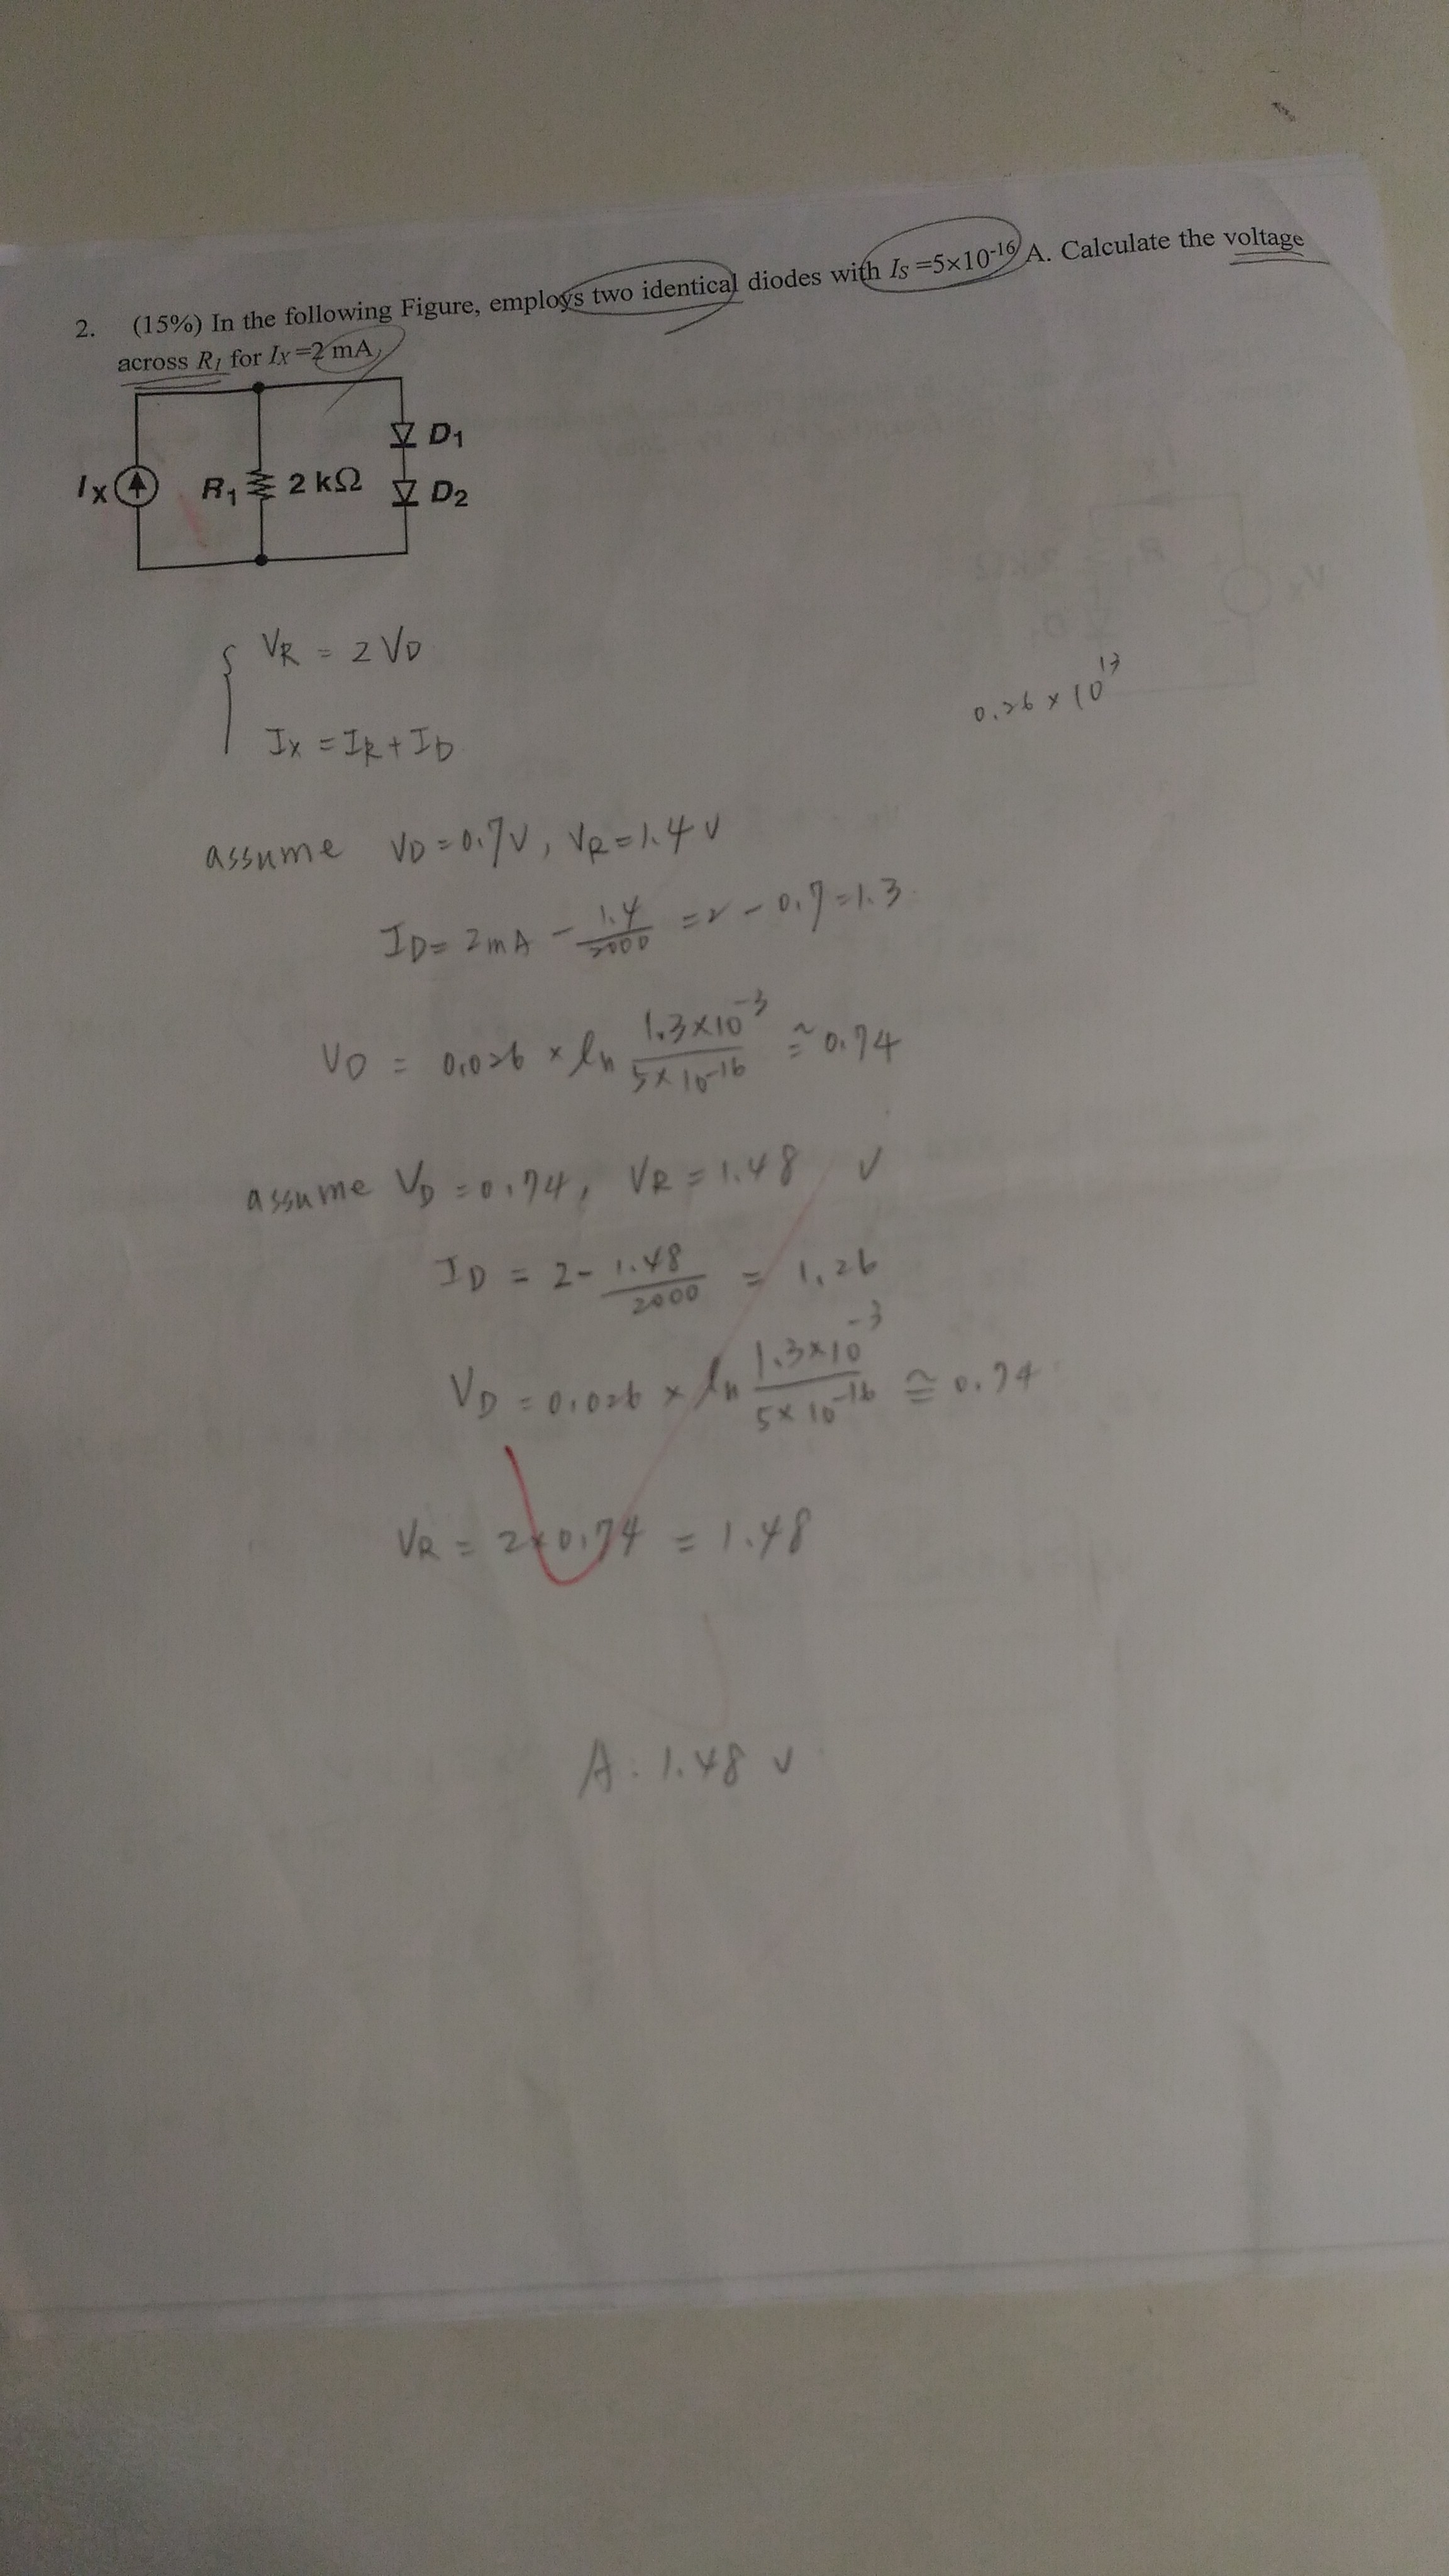 2. (15%) In the following Figure, employs two identical diodes with IS =5×10-16 A. Calculate the voltage
across R1 for IX =2 mA.
D1
IX R1 2 kΩ D2
VR = 2 VD
IX = IR + ID
0.26 × 10 13
assume VD = 0.7V, VR = 1.4 V
ID = 2mA - 1.4/2000 = 2 - 0.7 = 1.3
VD = 0.026 × ln 1.3×10-3 / 5×10-16 ≅ 0.74
assume VD = 0.74, VR = 1.48 V
ID = 2 - 1.48/2000 = 1.26
VD = 0.026 × ln 1.3×10-3 / 5×10-16 ≅ 0.74
VR = 2×0.74 = 1.48
A: 1.48 V